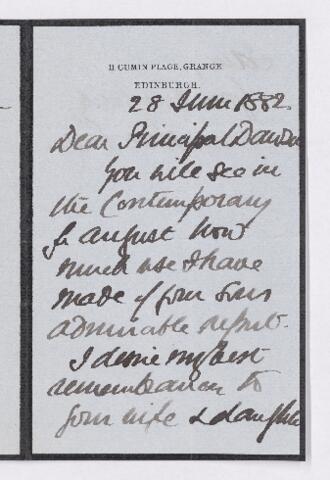 11 CUMIN PLACE, GRANGE
EDINBURGH.
28 June 1882.
Dear Principal Dawson
You will see in
the Contemporary
for august how
much use I have
made of your Sons
admirable report.
I desire my best
remembrances to
your wife & daughter